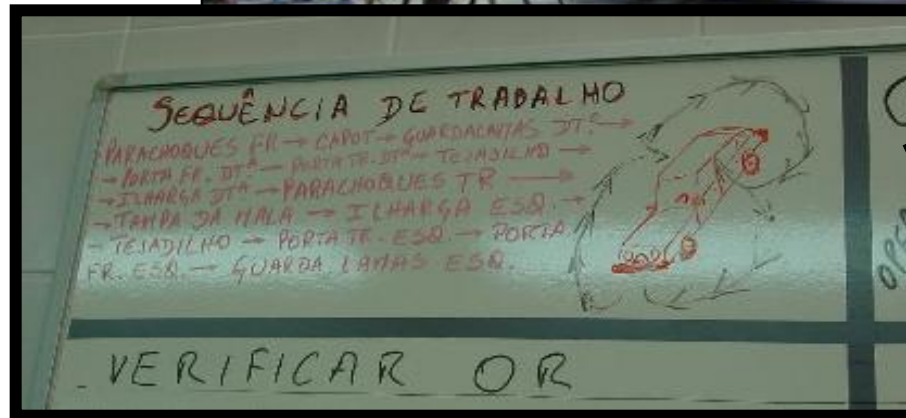 SEQUÊNCIA DE TRABALHO
PARACHOQUES FR → CAPOT → GUARDALAMAS DTº →
→ PORTA FR. DTª → PORTA TR. DTª → TEJADILHO →
→ ILHARGA DTª → PARACHOQUES TR →
→ TAMPA DA MALA → ILHARGA ESQ. →
- TEJADILHO → PORTA TR. ESQ. → PORTA
FR. ESQ. → GUARDA LAMAS ESQ.
- VERIFICAR OR